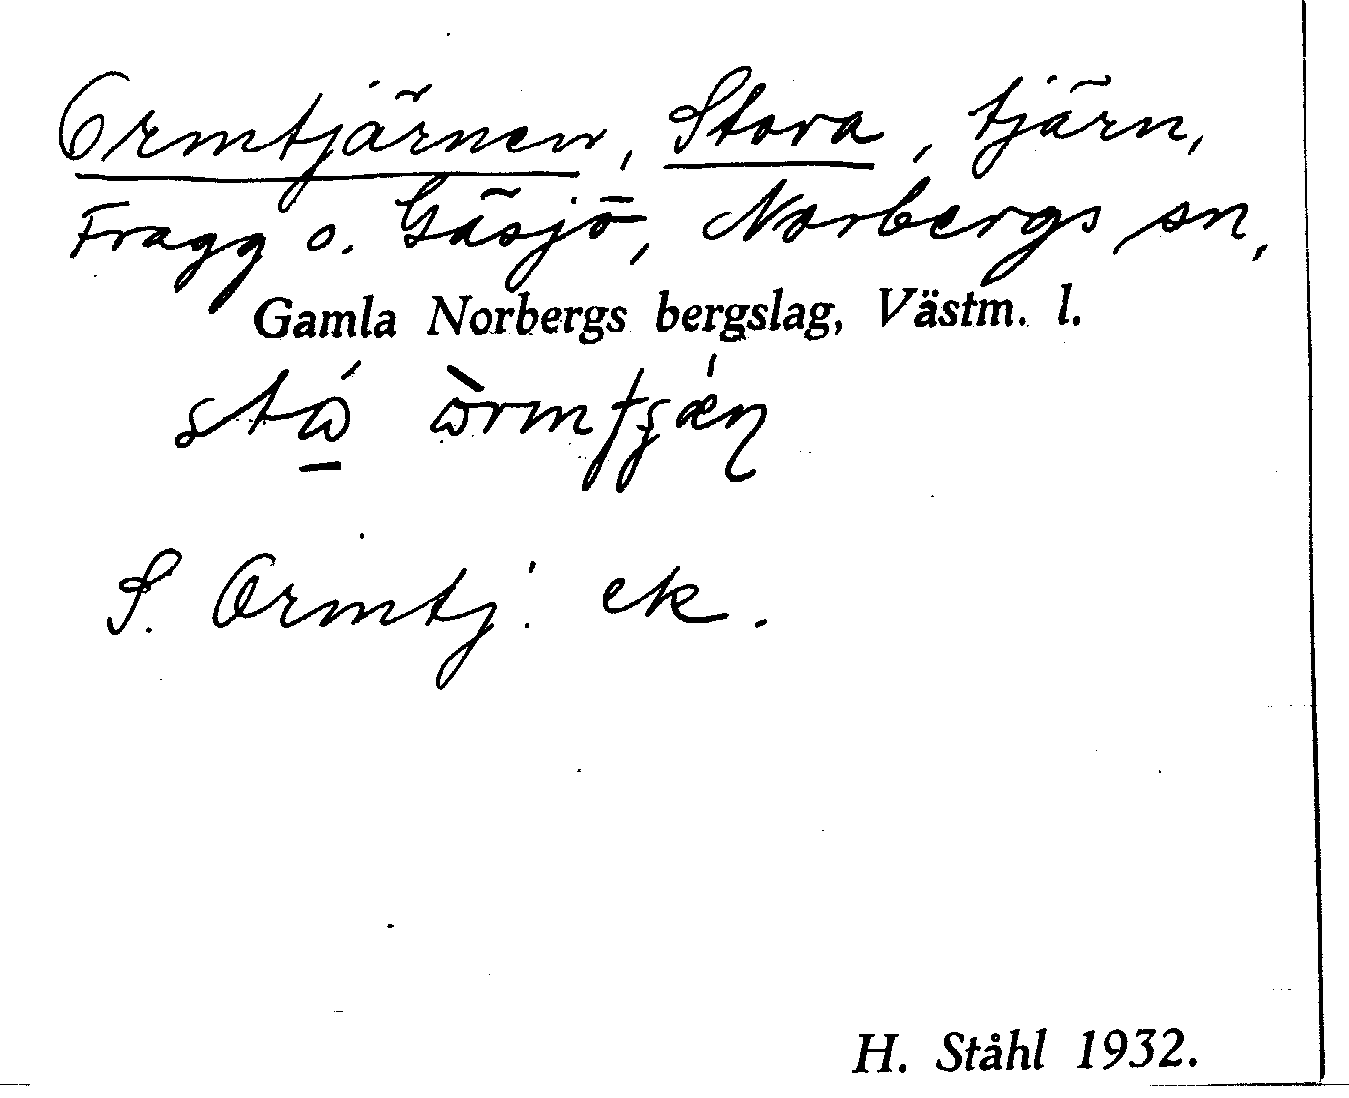 Ormtjärnen, Stora, tjärn,
Fragg o. Gäsjö, Norbergs sn,
Gamla Norbergs bergslag, Västm. l.
S. Ormtj. ek.
H. Ståhl 1932.